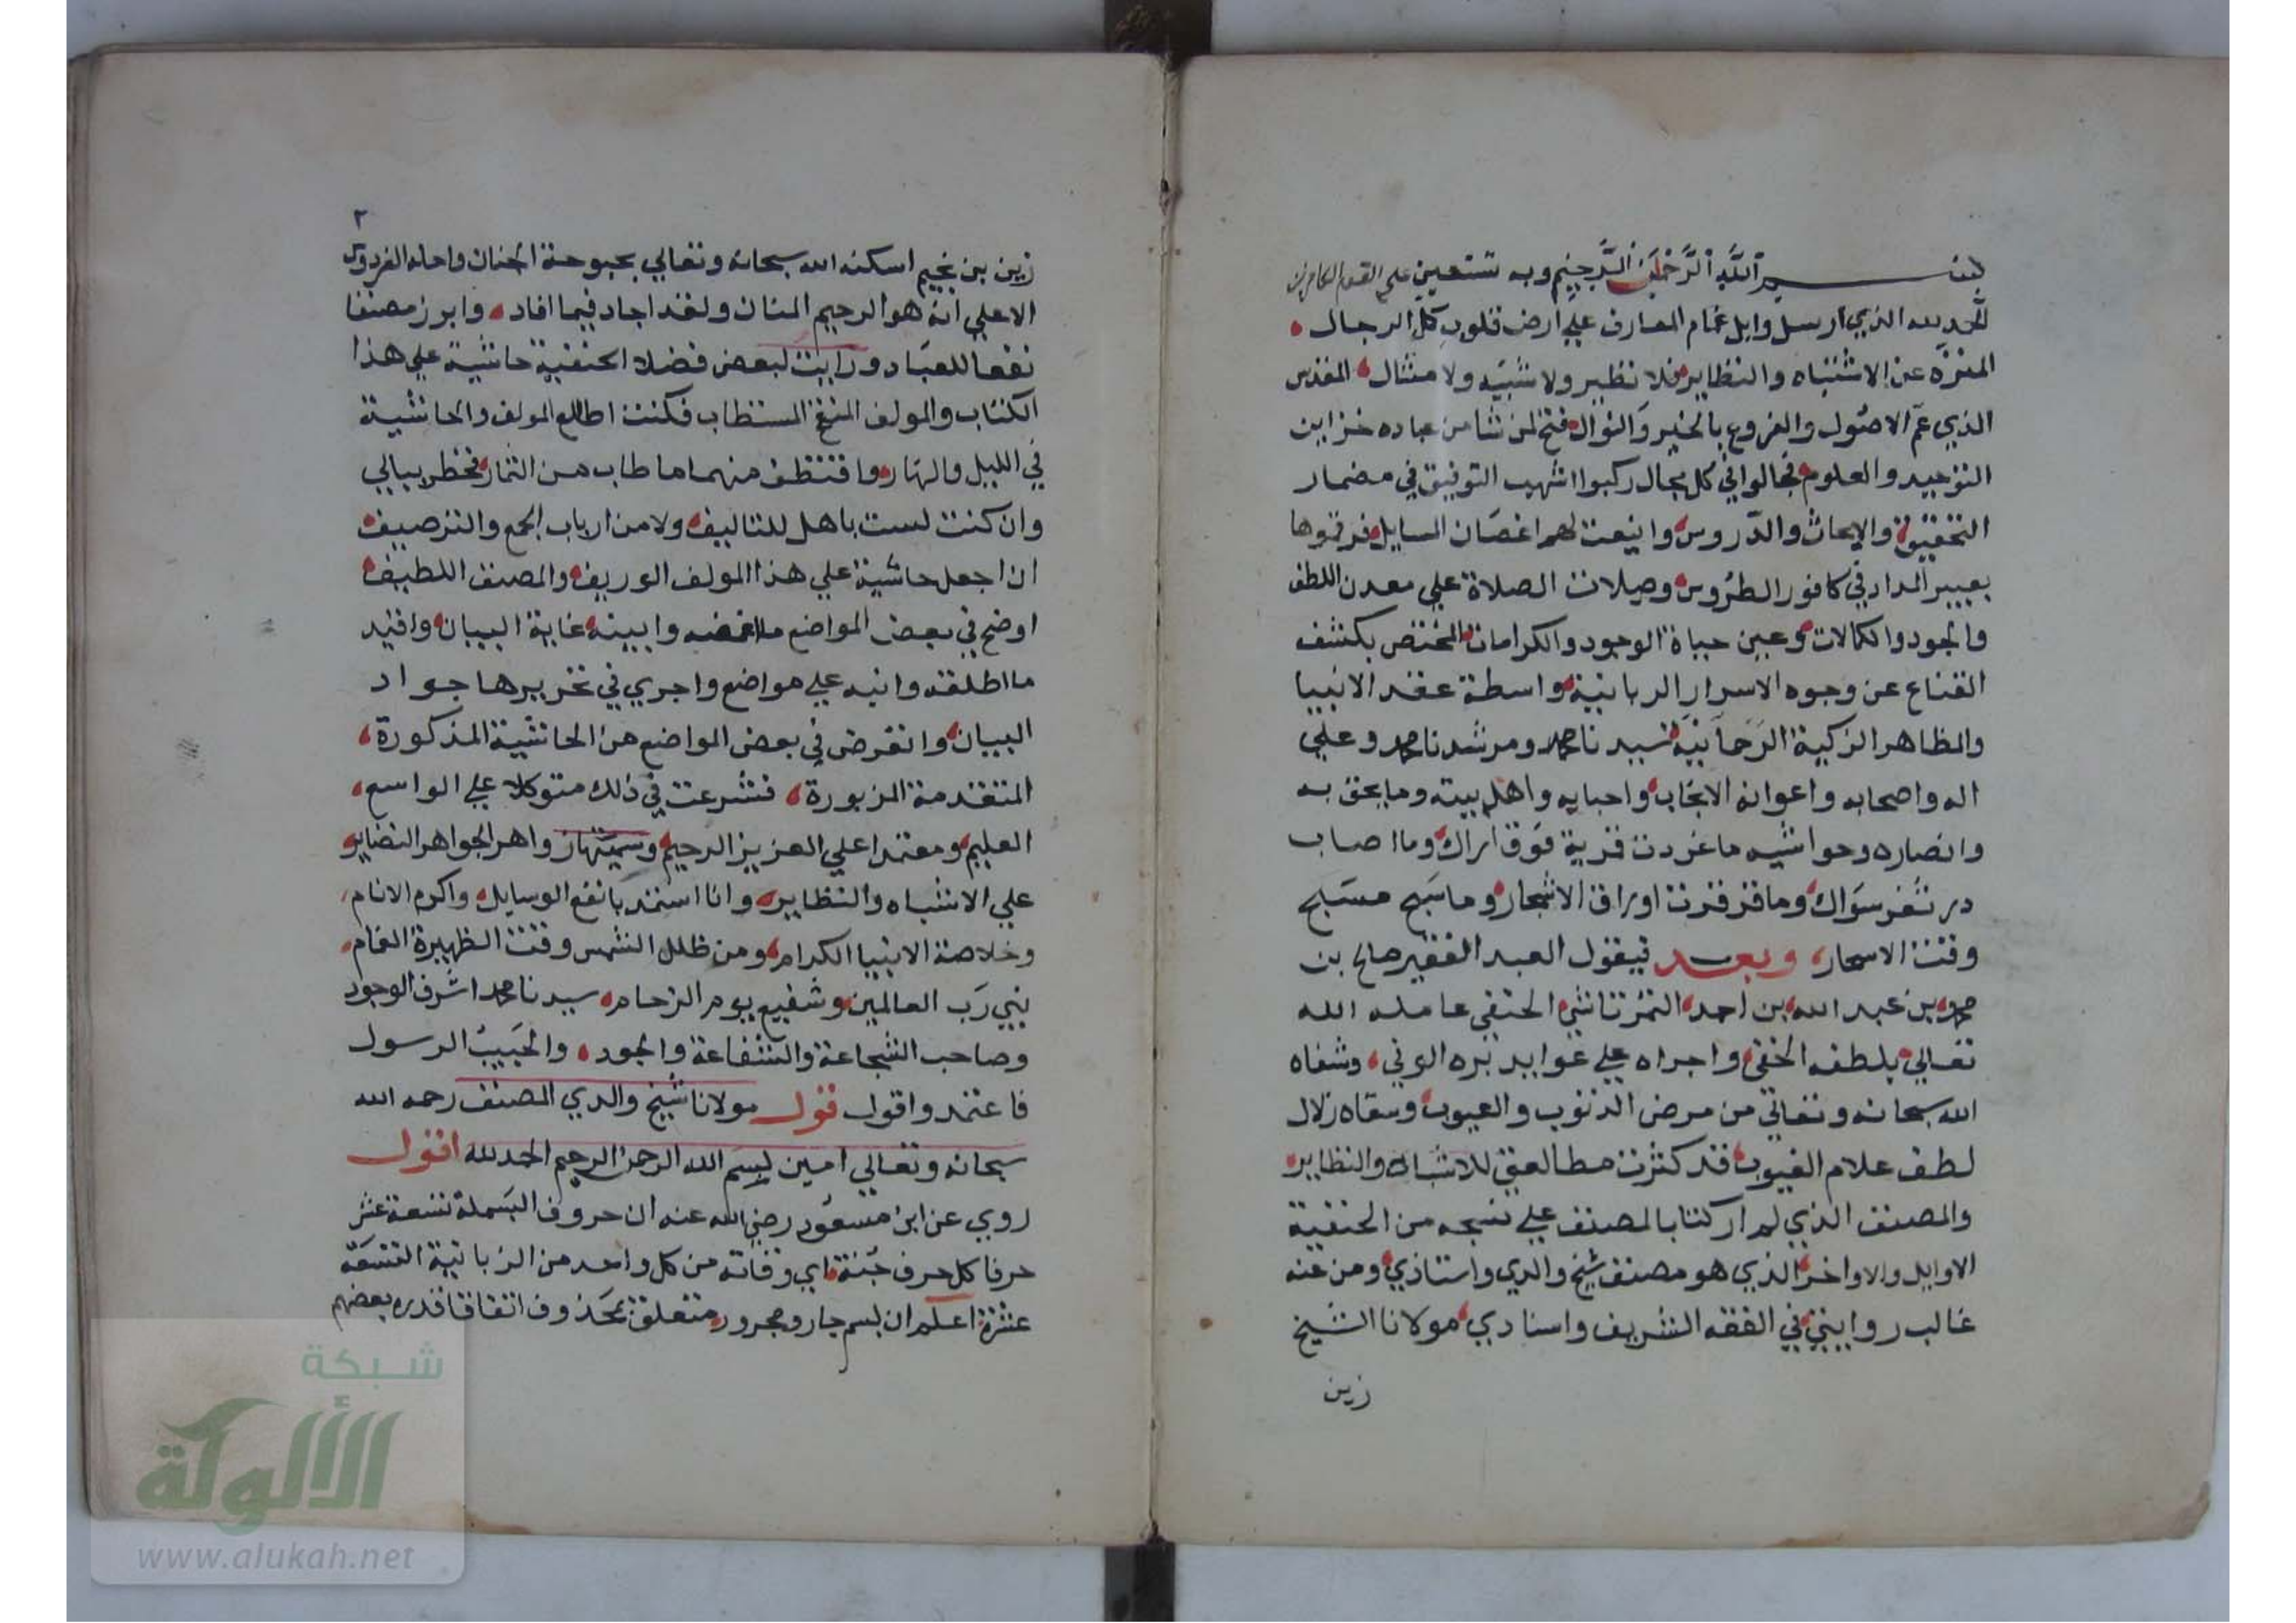 بسم الله الرحمن الرحيم وبه نستعين على القوم الكافرين
الحمد لله الذي ارسل وابل غمام المعارف علي ارض قلوب كل الرجال
المنزه عن الاشتباه والنظاير فلا نظير ولا شبيه ولا مثال المقدس
الذي عم الاصول والفروع بالخير والنوال فتح لمن شا من عباده خزاين
التوحيد والعلوم فجالوا في كل مجال ركبوا اشهب التوفيق في مضمار
التحقيق والابحاث والدروس واينعت لهم اغصان المسايل فرقموها
بعبير المداد في كافور الطروس وصيلات الصلاة علي معدن اللطف
والجود والكمالات وعين حياة الوجود والكرامات المختص بكشف
القناع عن وجوه الاسرار الربانية واسطة عقد الانبيا
والمظاهر الزكية الرحمانية سيدنا محمد ومرشدنا محمد وعلي
اله واصحابه واعوانه الانجاب واحبابه واهل بيته وما يحق به
وانصاره وحواشيه ما غردت قرية فوق اراك وما اصاب
در ثغر سواك وما قرقرت اوراق الاشجار وما سبح مسبح
وقت الاسحار وبعد فيقول العبد الفقير صالح بن
محمد بن عبد الله بن احمد التمرتاشي الحنفي عامله الله
تعالي بلطفه الخفي واجراه علي عوايد بره الوفي وشفاه
الله سبحانه وتعالي من مرض الذنوب والعيوب وسقاه زلال
لطف علام الغيوب قد كثرت مطالعتي للاشباه والنظاير
والمصنف الذي لم ار كتابا لمصنف علي نسجه من الحنفية
الاوايل والاواخر الذي هو مصنف شيخ والدي واستاذي ومن عنه
غالب روايتي في الفقه الشريف واسنادي مولانا الشيخ
زين
٢
زين بن نجيم اسكنه الله سبحانه وتعالي بحبوحة الجنان واحله الفردوس
الاعلي انه هو الرحيم المنان ولقد اجاد فيما افاد وابرز مصنفا
نفعا للعباد ورايت لبعض فضلا الحنفية حاشية علي هذا
الكتاب والمولف المنقح المستطاب فكنت اطالع المولف والحاشية
في الليل والنهار واقتطف منهما ما طاب من الثمار فخطر ببالي
وان كنت لست باهل للتاليف ولا من ارباب الجمع والترصيف
ان اجعل حاشية علي هذا المولف الوريف والمصنف اللطيف
اوضح في بعض المواضع ما اغمضه وابينه غاية البيان واقيد
ما اطلقه وانبه علي مواضع واجري في تحريرها جواد
البيان واتعرض في بعض المواضع من الحاشية المذكورة
المتقدمة المزبورة فشرعت في ذلك متوكلا علي الواسع
العليم ومعتمدا علي العزيز الرحيم وسميتها زواهر الجواهر النضاير
علي الاشباه والنظاير وانا استمد بانفع الوسايل واكرم الانام
وخلاصة الانبيا الكرام ومن ظلل الشمس وقت الظهيرة الغمام
نبي رب العالمين وشفيع يوم الزحام سيدنا محمد اشرف الوجود
وصاحب الشجاعة والشفاعة والجود والحبيب الرسول
فاعتمد واقول قول مولانا شيخ والدي المصنف رحمه الله
سبحانه وتعالي امين بسم الله الرحمن الرحيم الحمد لله اقول
روي عن ابن مسعود رضي الله عنه ان حروف البسملة تسعة عشر
حرفا كل حرف جنة اي وقاتة من كل واحد من الزبانية التسعة
عشرة اعلم ان بسم جار ومجرور متعلق بمحذوف اتفاقا قدره بعضهم
شبكة
الألوكة
www.alukah.net